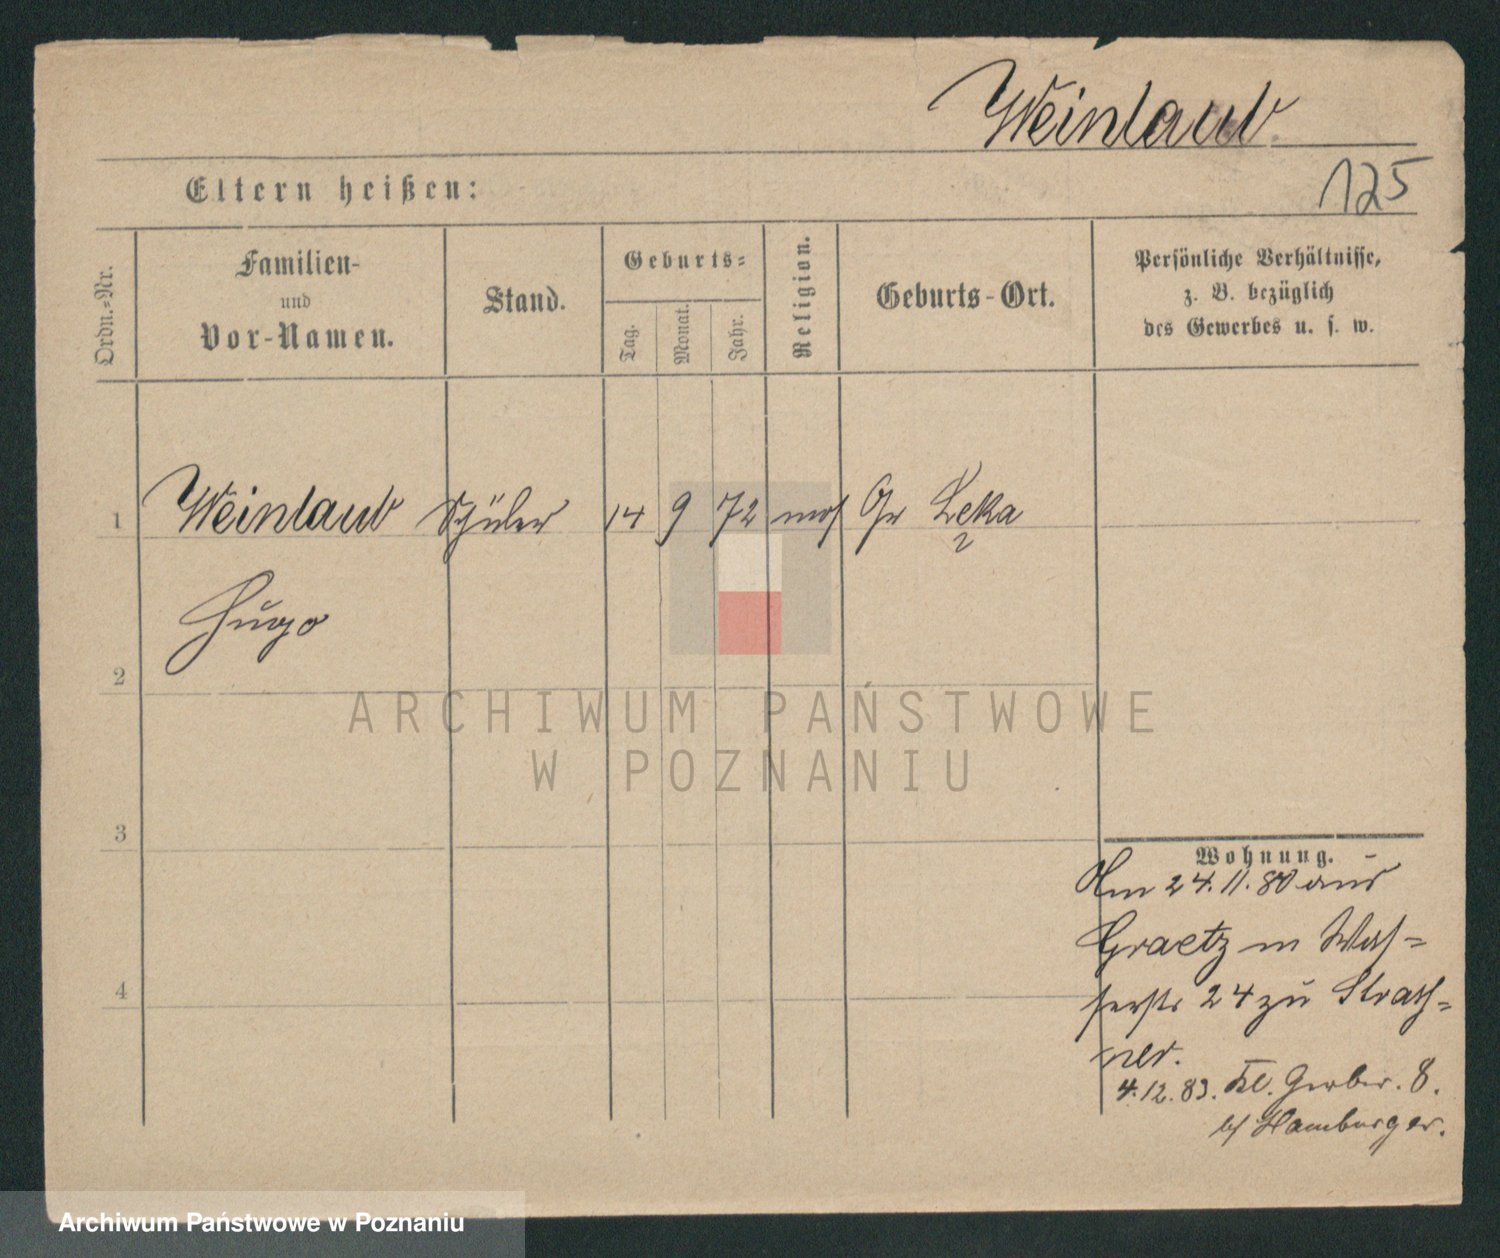 Weinlaub
125
Eltern heißen:
Ordn.-Nr.
Familien-
und
Vor-Namen.
Stand.
Geburts-
Tag.
Monat.
Jahr.
Religion.
Geburts-Ort.
Persönliche Verhältnisse,
z. B. bezüglich
des Gewerbes u. s. w.
1 Weinlaub Schüler 14 9 72 mos Gr Leka
Hugo
2
ARCHIWUM PAŃSTWOWE
W POZNANIU
3
Wohnung.
Am 24.11.80 aus
Graetz in Was-
4
serstr 24 zu Strath-
ner.
4.12.83. Kl. Gerber. 8.
b/ Hamburger.
Archiwum Państwowe w Poznaniu